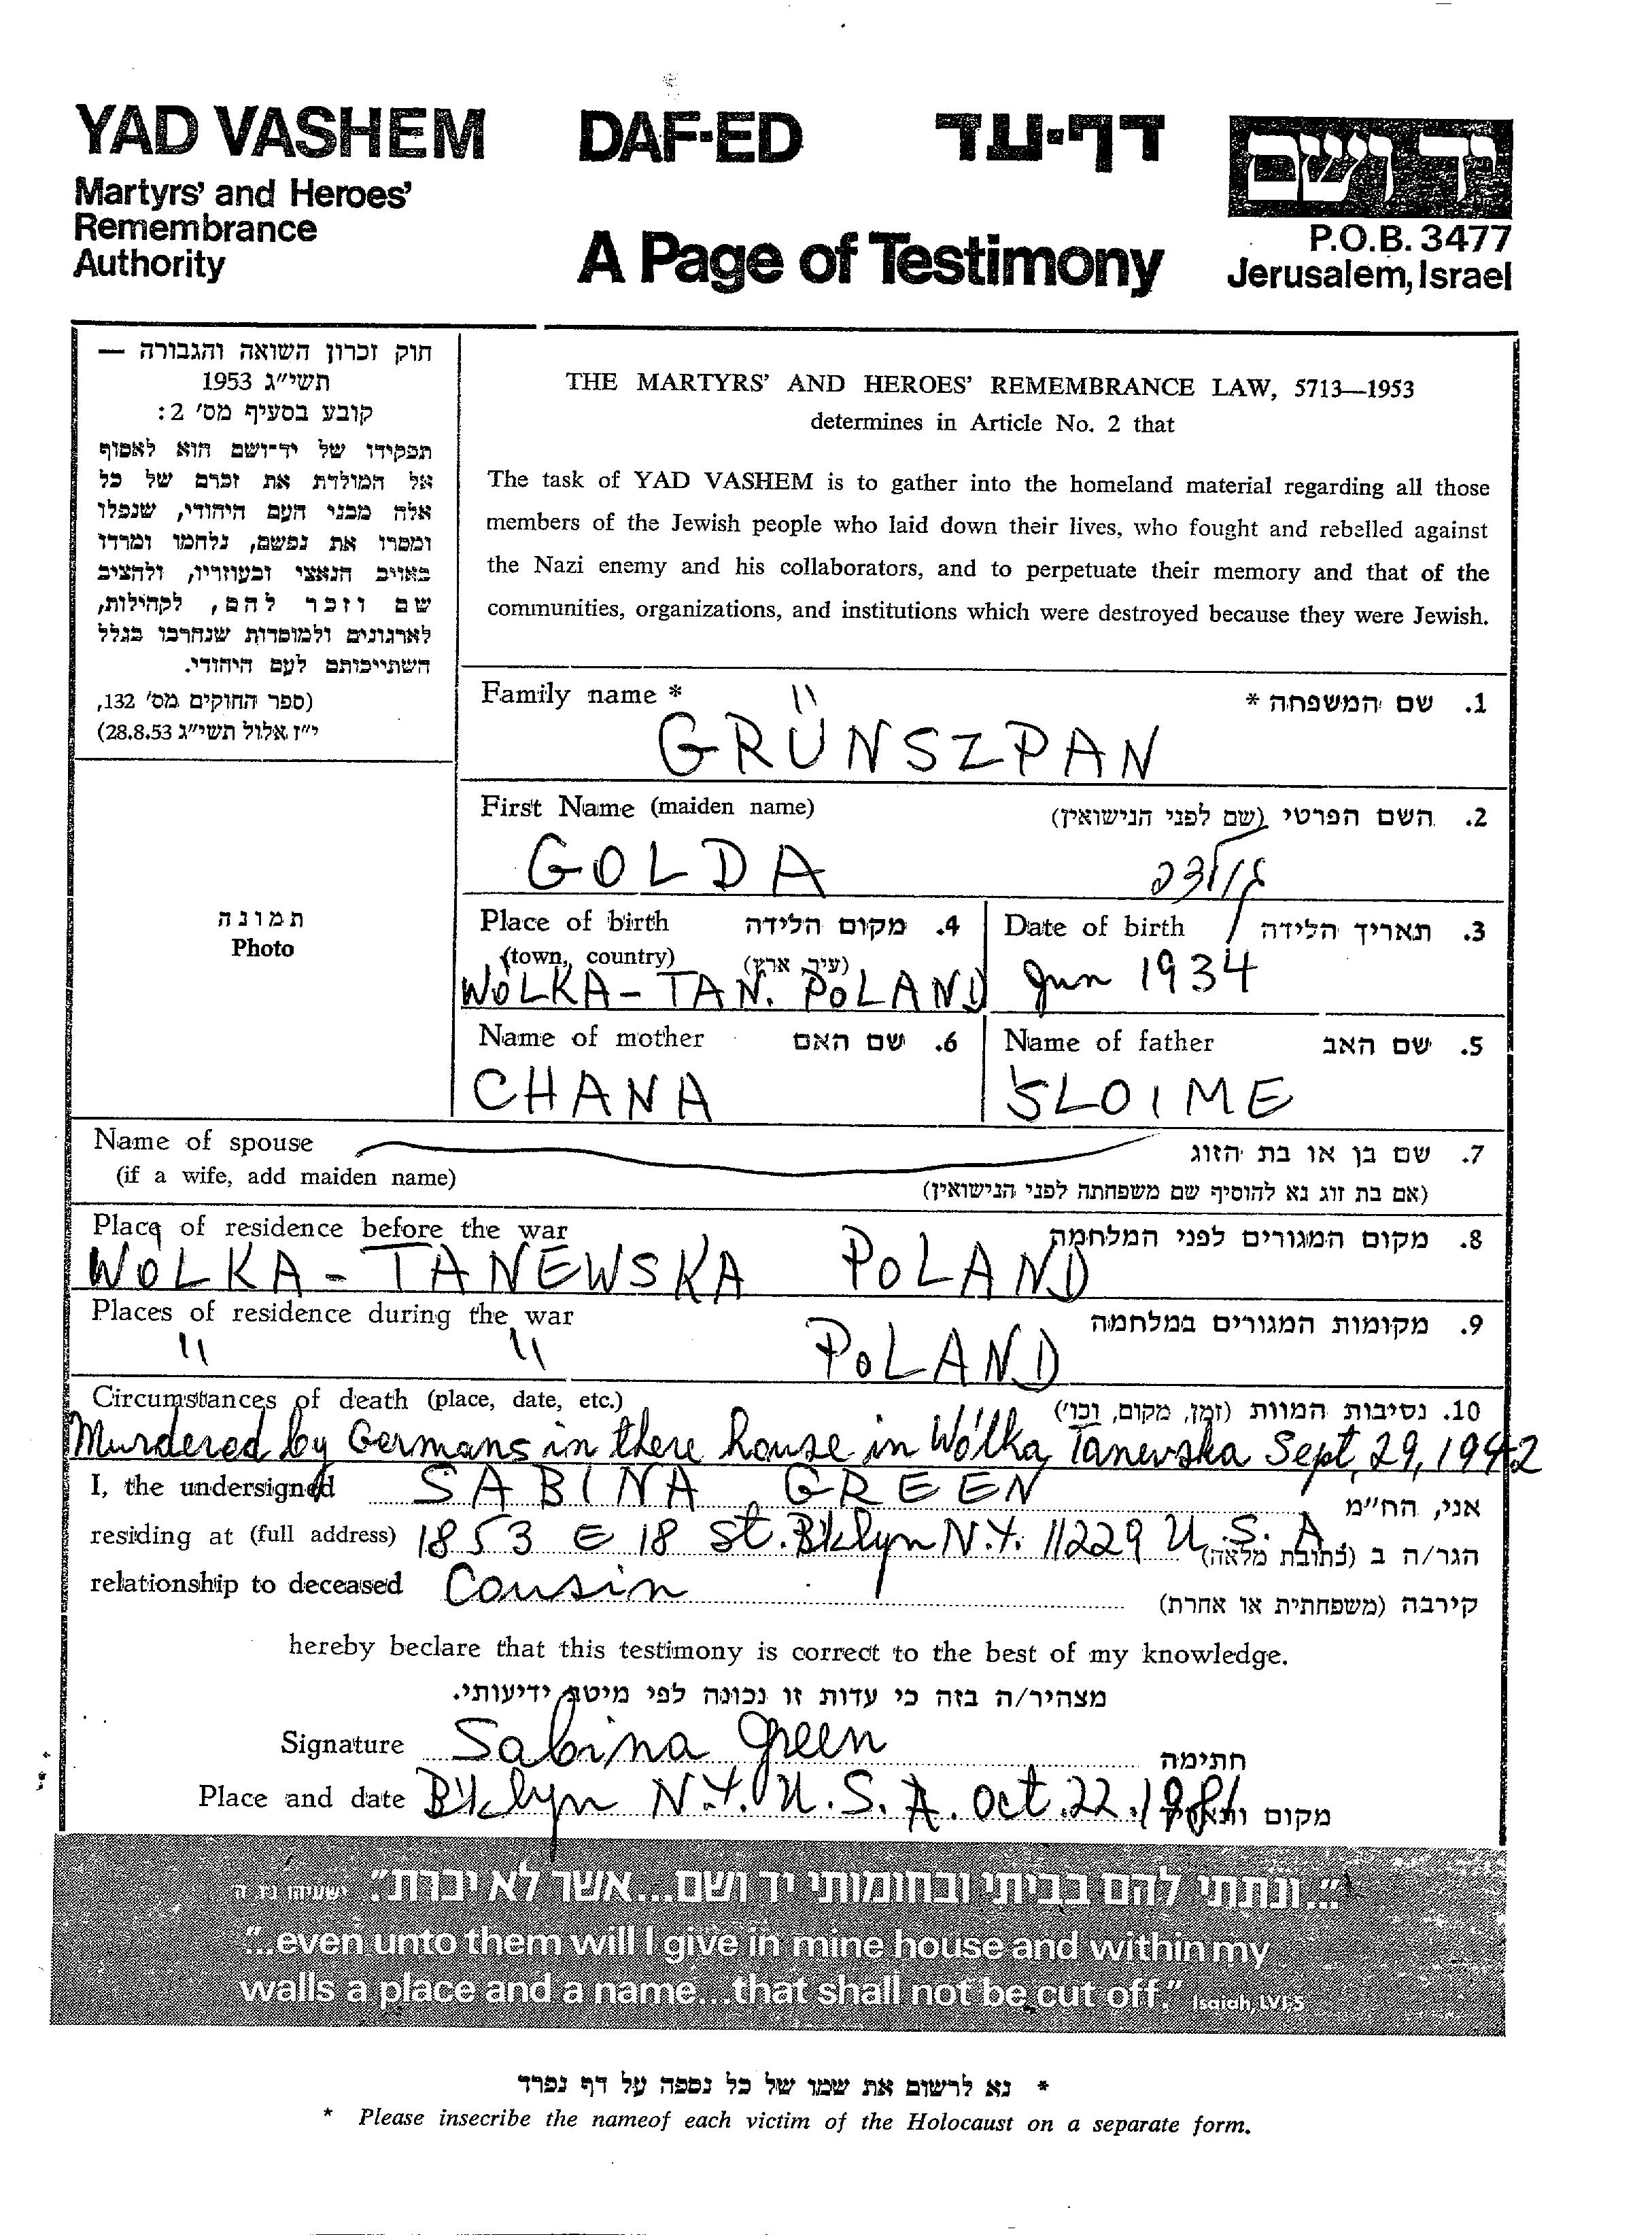 YAD VASHEM DAF-ED דף-עד יד ושם
Martyrs' and Heroes'
Remembrance
Authority
A Page of Testimony
P.O.B. 3477
Jerusalem, Israel
חוק זכרון השואה והגבורה —
תשי"ג 1953
קובע בסעיף מס' 2:
תפקידו של יד־ושם הוא לאסוף
אל המולדת את זכרם של כל
אלה מבני העם היהודי, שנפלו
ומסרו את נפשם, נלחמו ומרדו
באויב הנאצי ובעוזריו, ולהציב
שם וזכר להם, לקהילות,
לארגונים ולמוסדות שנחרבו בגלל
השתייכותם לעם היהודי.
(ספר החוקים מס' 132,
י"ז אלול תשי"ג 28.8.53)
THE MARTYRS' AND HEROES' REMEMBRANCE LAW, 5713—1953
determines in Article No. 2 that
The task of YAD VASHEM is to gather into the homeland material regarding all those
members of the Jewish people who laid down their lives, who fought and rebelled against
the Nazi enemy and his collaborators, and to perpetuate their memory and that of the
communities, organizations, and institutions which were destroyed because they were Jewish.
Family name * 1. שם המשפחה *
GRÜNSZPAN
First Name (maiden name) 2. השם הפרטי (שם לפני הנישואין)
GOLDA גולדה
תמונה
Photo
Place of birth 4. מקום הלידה
(town, country) (עיר, ארץ)
WOLKA-TAN. POLAND
Date of birth 3. תאריך הלידה
Jun 1934
Name of mother 6. שם האם
CHANA
Name of father 5. שם האב
SLOIME
Name of spouse 7. שם בן או בת הזוג
(if a wife, add maiden name) (אם בת זוג נא להוסיף שם משפחתה לפני הנישואין)
Place of residence before the war 8. מקום המגורים לפני המלחמה
WOLKA-TANEWSKA POLAND
Places of residence during the war 9. מקומות המגורים במלחמה
" " POLAND
Circumstances of death (place, date, etc.) 10. נסיבות המוות (זמן, מקום, וכו')
Murdered by Germans in there house in Wólka Tanewska Sept, 29, 1942
I, the undersigned SABINA GREEN אני, הח"מ
residing at (full address) 1853 E 18 St. Bklyn N.Y. 11229 U.S.A. הגר/ה ב (כתובת מלאה)
relationship to deceased Cousin קירבה (משפחתית או אחרת)
hereby beclare that this testimony is correct to the best of my knowledge.
מצהיר/ה בזה כי עדות זו נכונה לפי מיטב ידיעותי.
Signature Sabina Green חתימה
Place and date Bklyn N.Y. U.S.A. Oct. 22. 1981 מקום ותאריך
"...ונתתי להם בביתי ובחומותי יד ושם...אשר לא יכרת". ישעיהו נו ה
"...even unto them will I give in mine house and within my
walls a place and a name...that shall not be cut off." Isaiah, LVI-5
* נא לרשום את שמו של כל נספה על דף נפרד
* Please insecribe the nameof each victim of the Holocaust on a separate form.